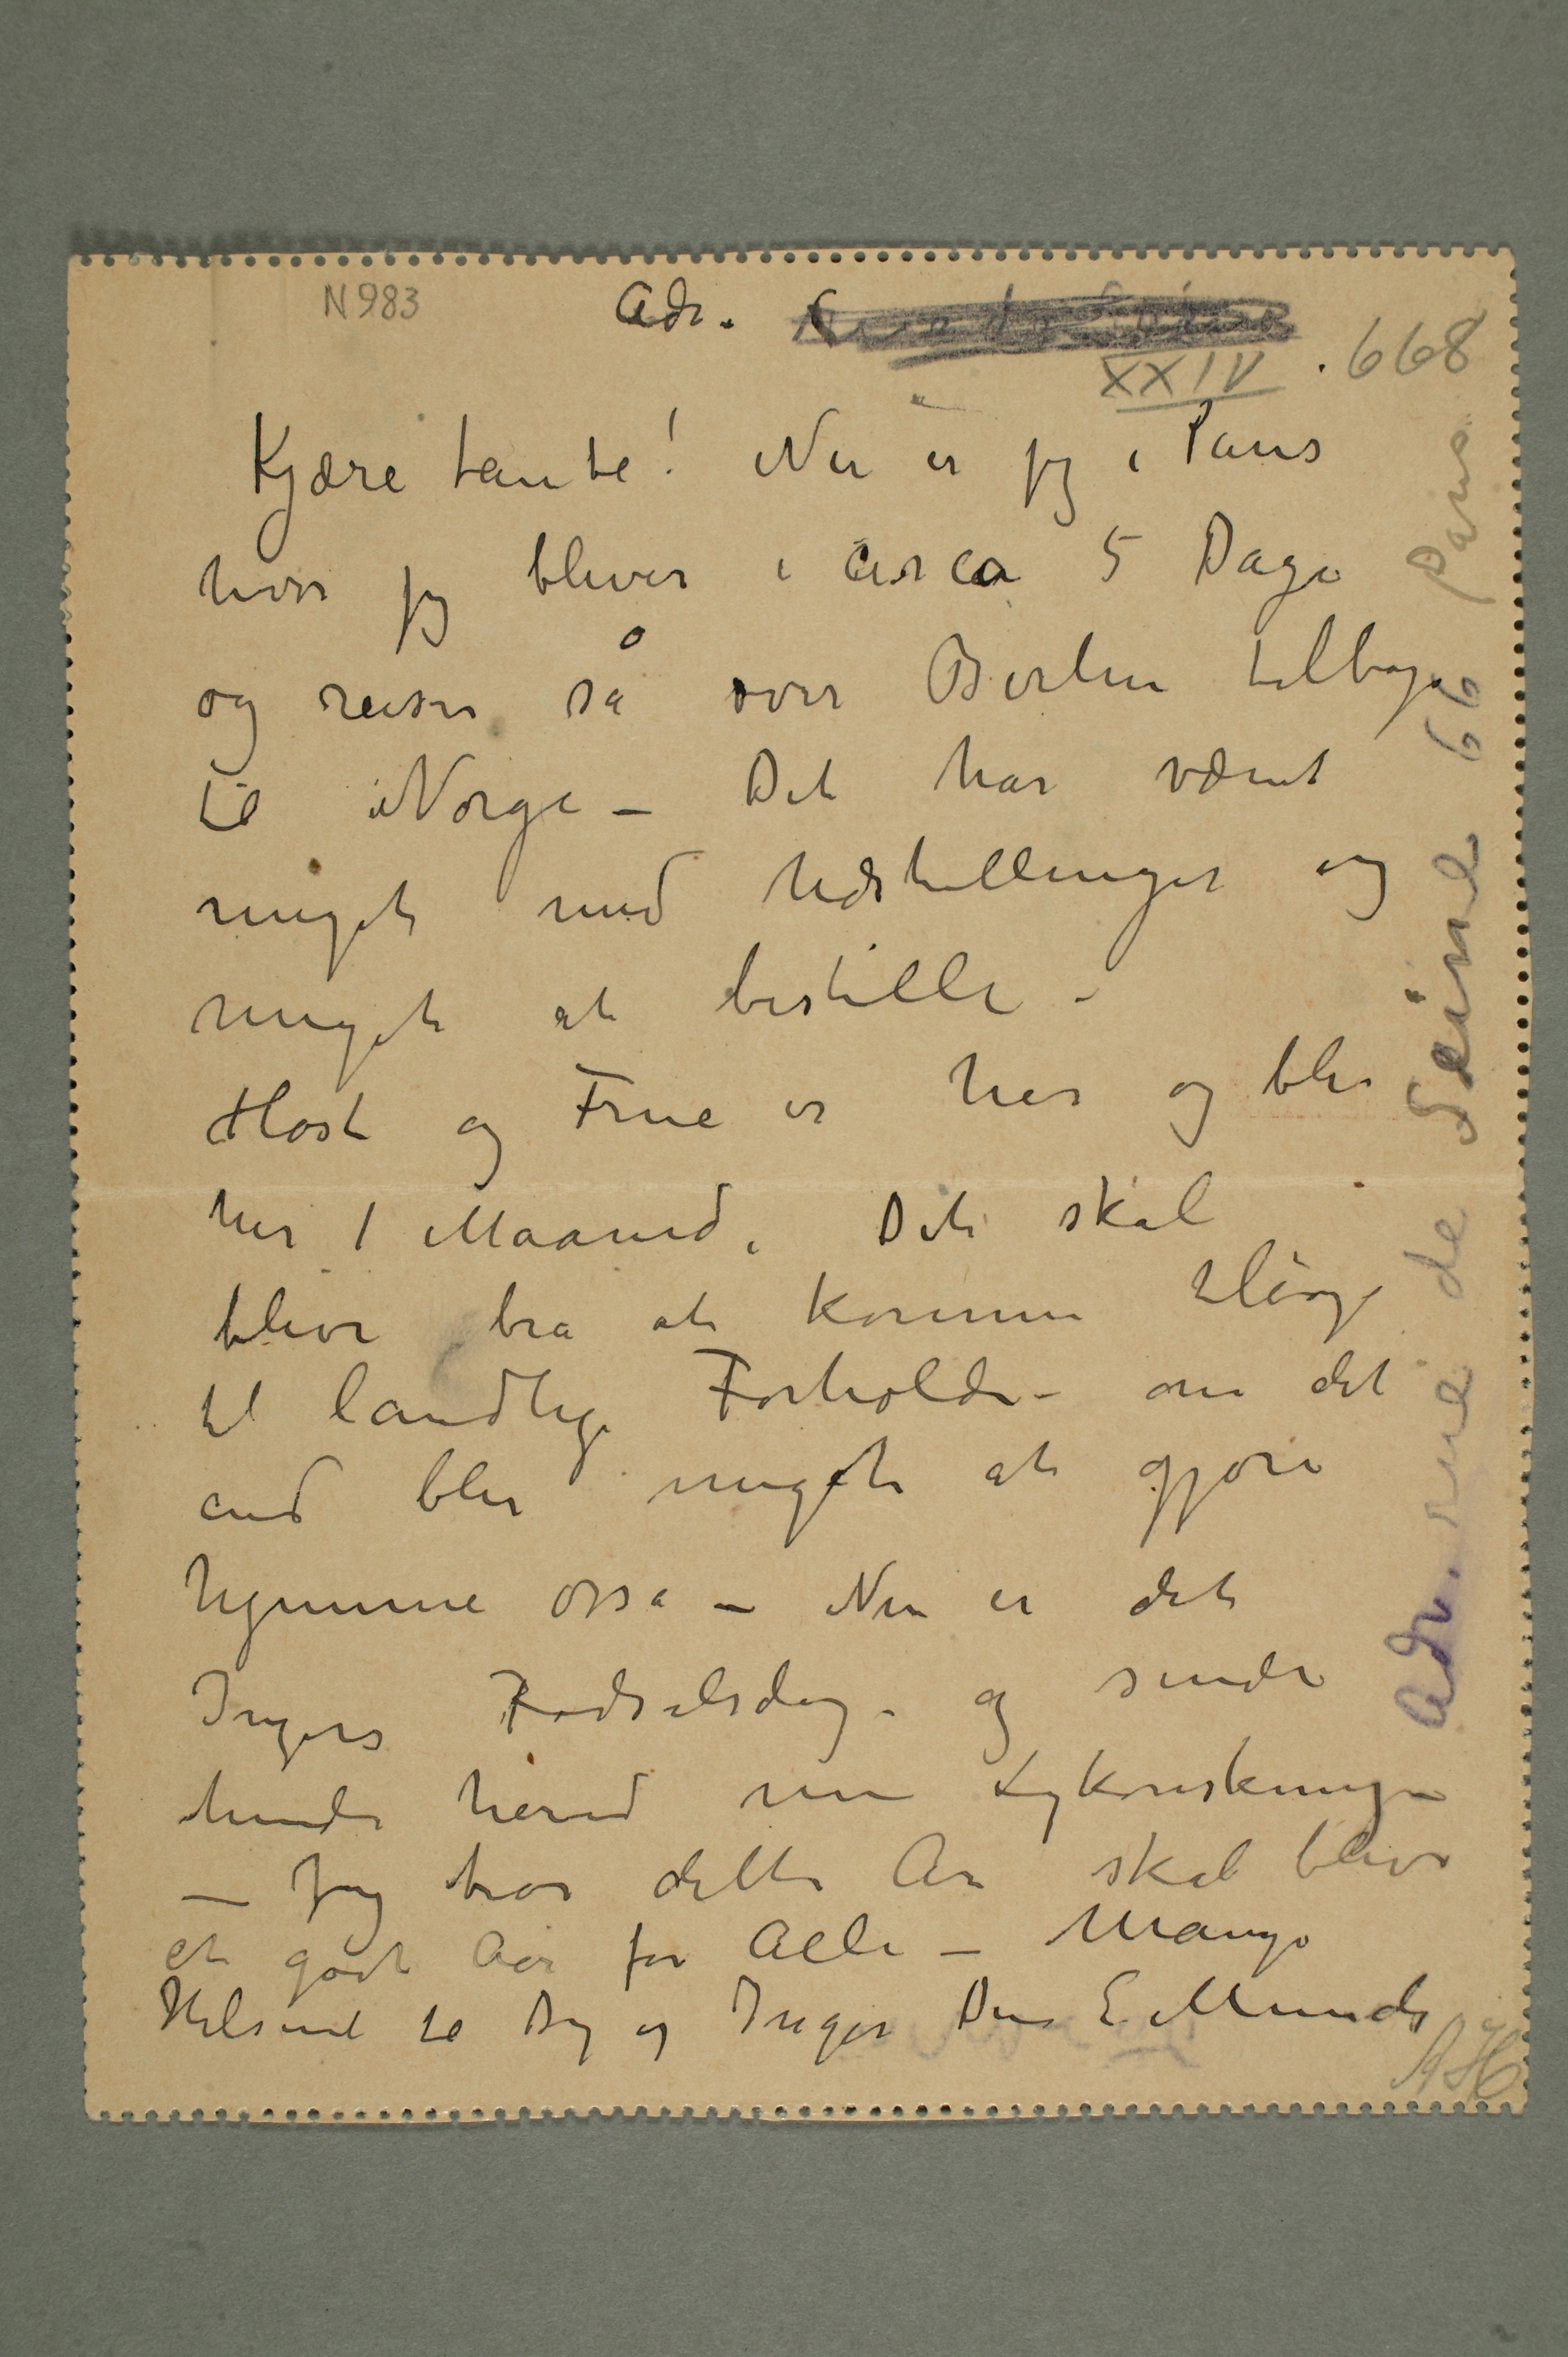 N 983
Adr.
XXIV . 668
Kjære tante! Nu er jeg i Paris
hvor jeg bliver i circa 5 Dage
og reiser så over Berlin tilbage
til Norge – Det har været
meget med Udstillinger og
meget at bestille –
Høst og Frue er her og blir
her 1 Maaned. Det skal
blive bra at komme tilbage
til landlige Forholde – om det
end blir meget at gjøre
hjemme osså – Nu er det
Ingers Fødselsdag – og sender
hende herved min Lykønskning –
– Jeg tror dette År skal blive
et godt Aar for Alle – Mange
Hilsener til Dig og Inger Din E Munch
AH
Adr. rue de Seine 66 Paris